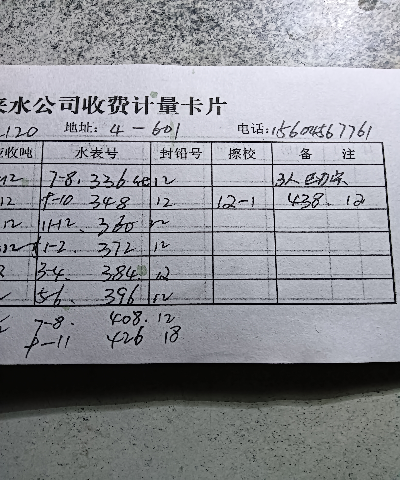 来水公司收费计量卡片
2120 地址: 4-601 电话: 15604567761
应收吨 水表号 封铅号 擦校 备 注
12 7-8. 336 12 3人
12 9-10 348 12 12-1 438. 12
12 11-12. 360 12
12 1-2. 372 12
3-4. 384. 12
5-6. 396 12
7-8. 408. 12
9-11 426 18